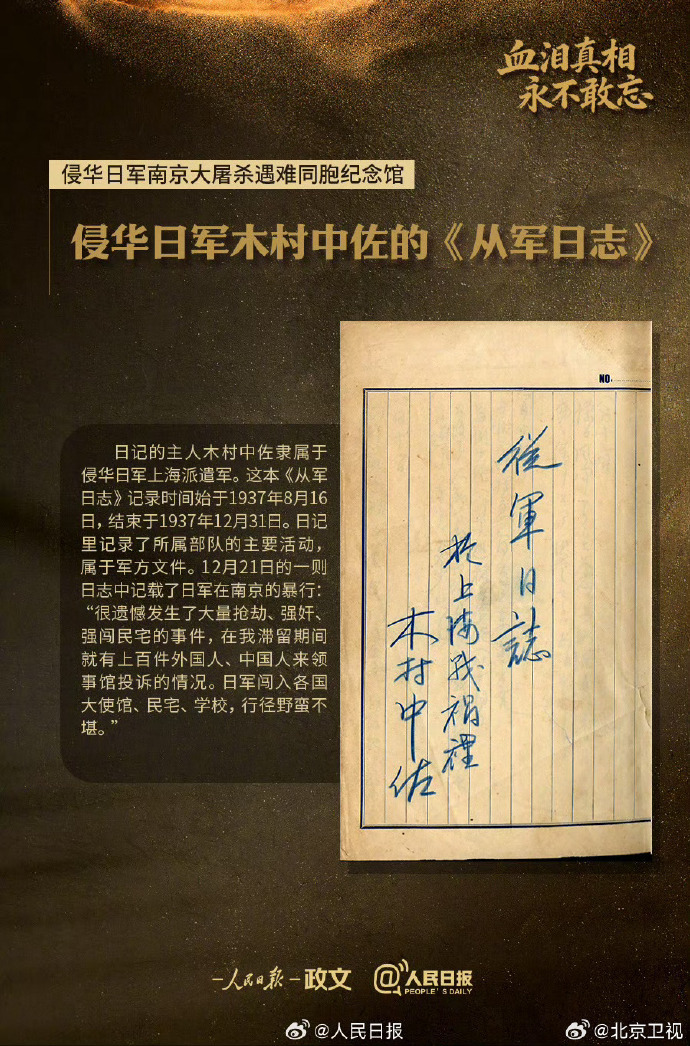 血泪真相
永不敢忘
侵华日军南京大屠杀遇难同胞纪念馆
侵华日军木村中佐的《从军日志》
日记的主人木村中佐隶属于
侵华日军上海派遣军。这本《从军
日志》记录时间始于1937年8月16
日，结束于1937年12月31日。日记
里记录了所属部队的主要活动，
属于军方文件。12月21日的一则
日志中记载了日军在南京的暴行：
“很遗憾发生了大量抢劫、强奸、
强闯民宅的事件，在我滞留期间
就有上百件外国人、中国人来领
事馆投诉的情况。日军闯入各国
大使馆、民宅、学校，行径野蛮不
堪。”
NO.
從軍日誌
於上海戰禍裡
木村中佐
人民日报 政文
@人民日报
PEOPLE'S DAILY
@人民日报
@北京卫视